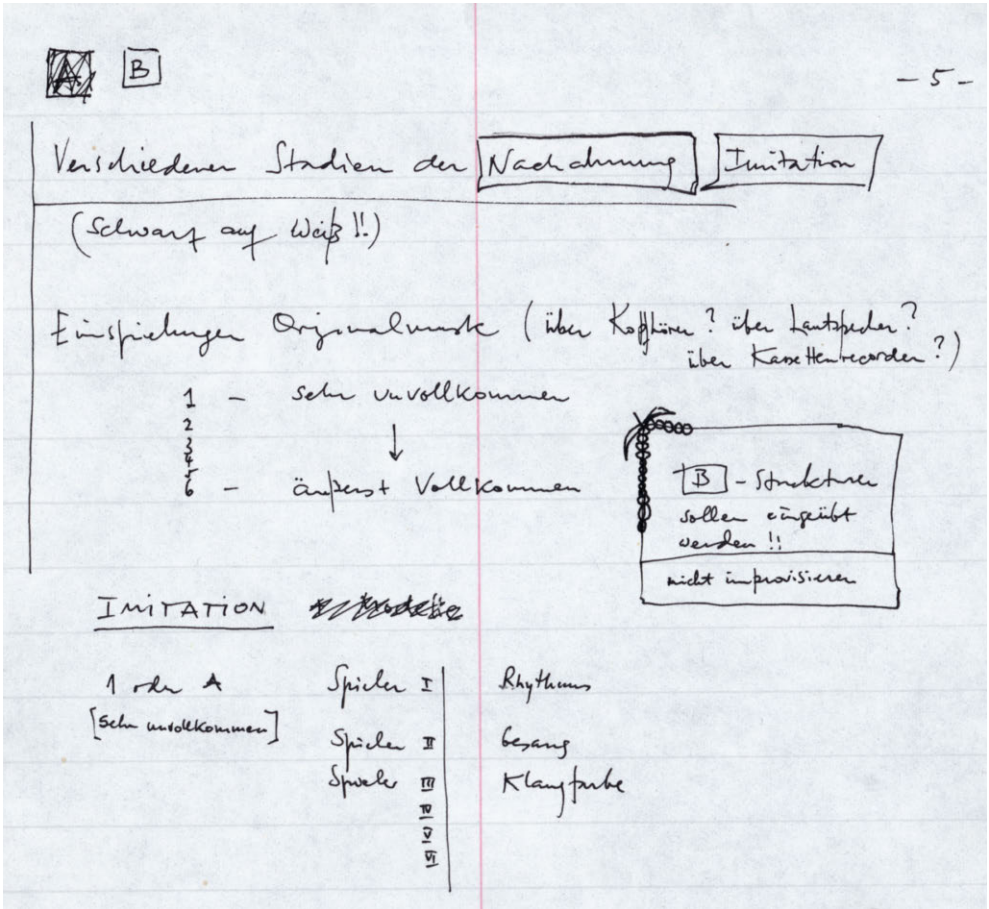 A B - 5 -
Verschiedener Stadien der Nachahmung Imitation
(Schwarz auf Weiß!!)
Einspielungen Originalmusik (über Kopfhörer? über Lautsprecher?
über Kassettenrecorder?)
1 - sehr unvollkommen
2
3
4
5
6 - äußerst Vollkommen
B - Strukturen
sollen eingeübt
werden!!
nicht improvisieren
IMITATION
1 oder A Spieler I Rhythmus
[sehr unvollkommen]
Spieler II Gesang
Spieler III Klangfarbe
IV
V
VI